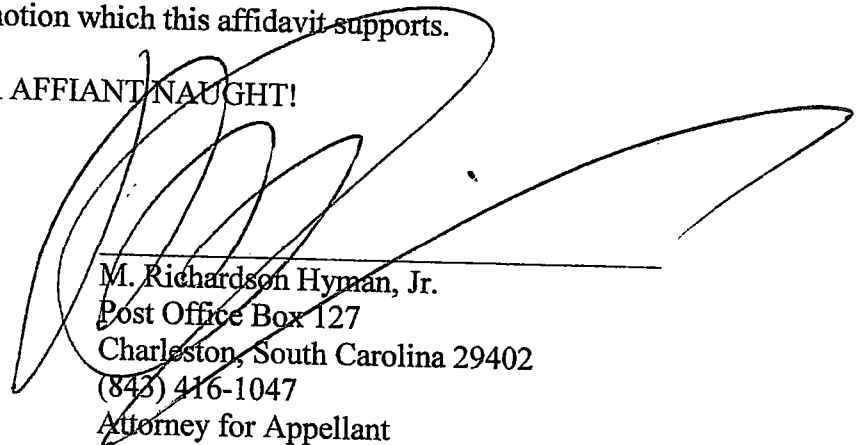 otion which this affidavit supports.
AFFIANT NAUGHT!
M. Richardson Hyman, Jr.
Post Office Box 127
Charleston, South Carolina 29402
(843) 416-1047
Attorney for Appellant